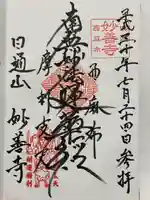 平成三十年七月二十四日参拝
妙善寺
西麻布
南無妙法蓮華経
摩利支天
日通山 妙善寺